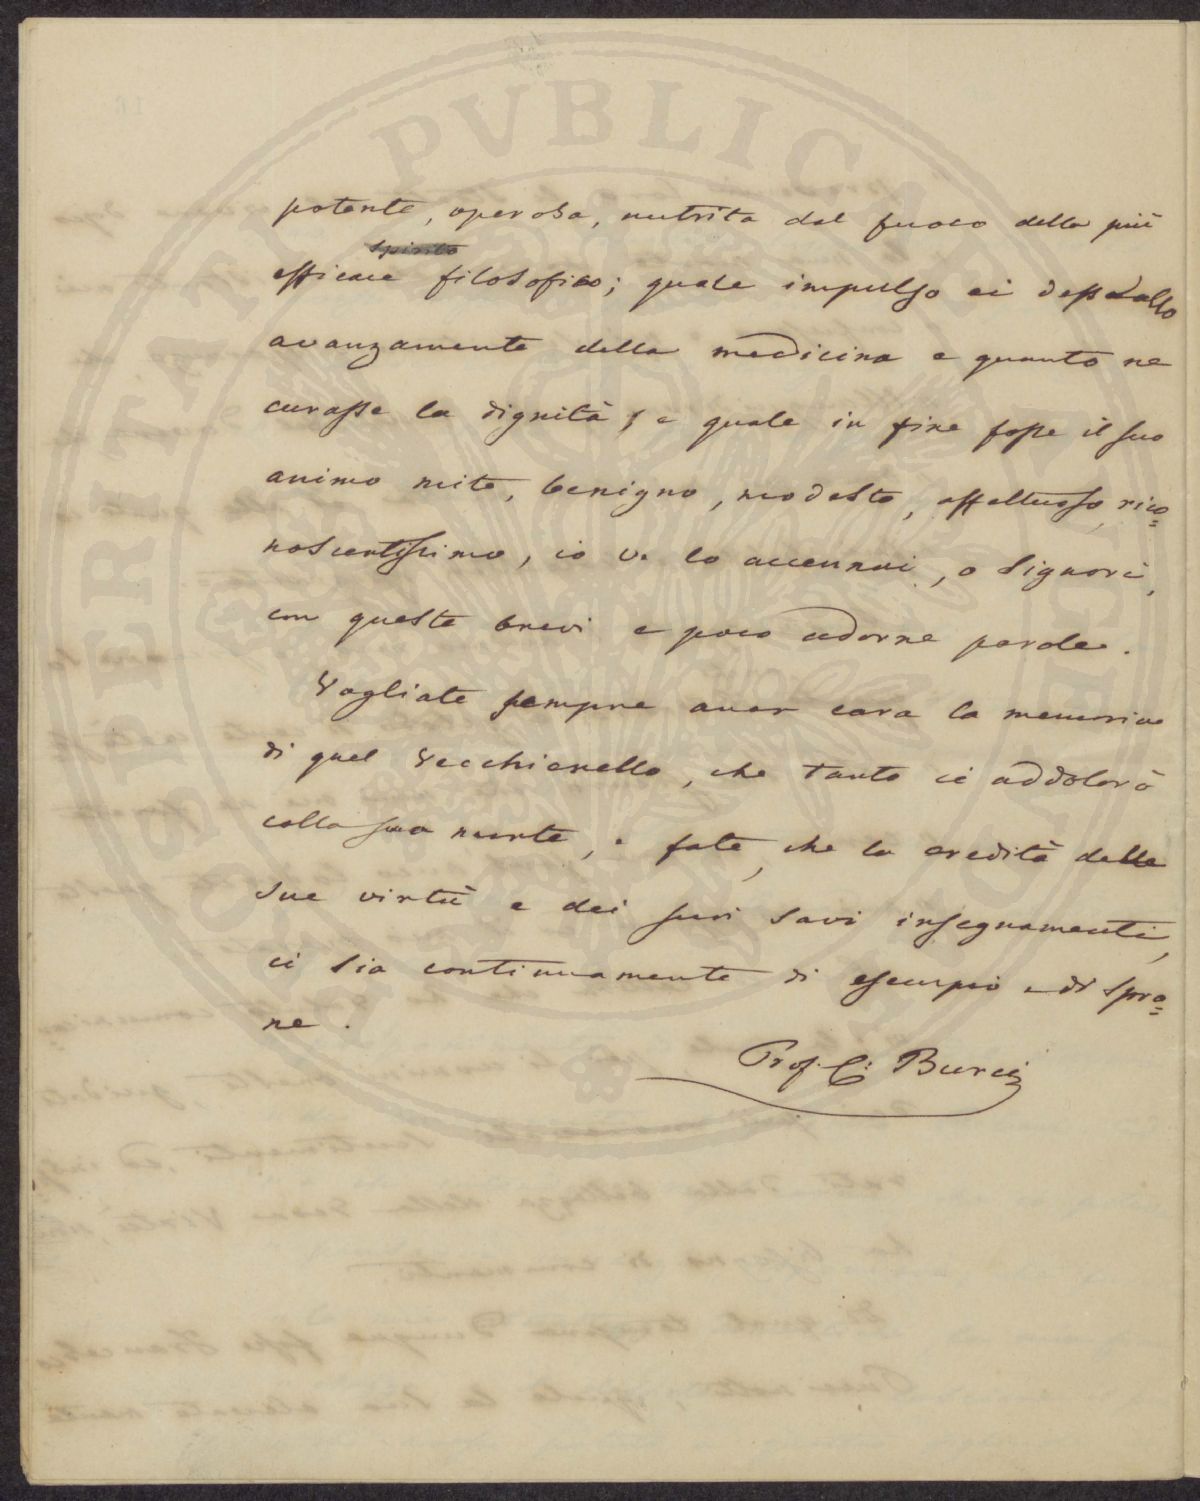 PVBLICAE
potente, operosa, nutrita dal fuoco della più
spirito
efficace filosofico; quale impulso ei desse allo
avanzamento della medicina e quanto ne
curasse la dignità; e quale in fine fosse il suo
animo mite, benigno, modesto, affettuoso, rico=
noscentissimo, io ve lo accennai, o Signori,
con queste brevi e poco adorne parole.
Vogliate sempre aver cara la memoria
di quel Vecchierello, che tanto ci addolorò
colla sua morte, e fate, che la eredità delle
sue virtù e dei suoi savi insegnamenti,
ci sia continuamente di esempio e di spro=
ne.
Prof. C. Burci